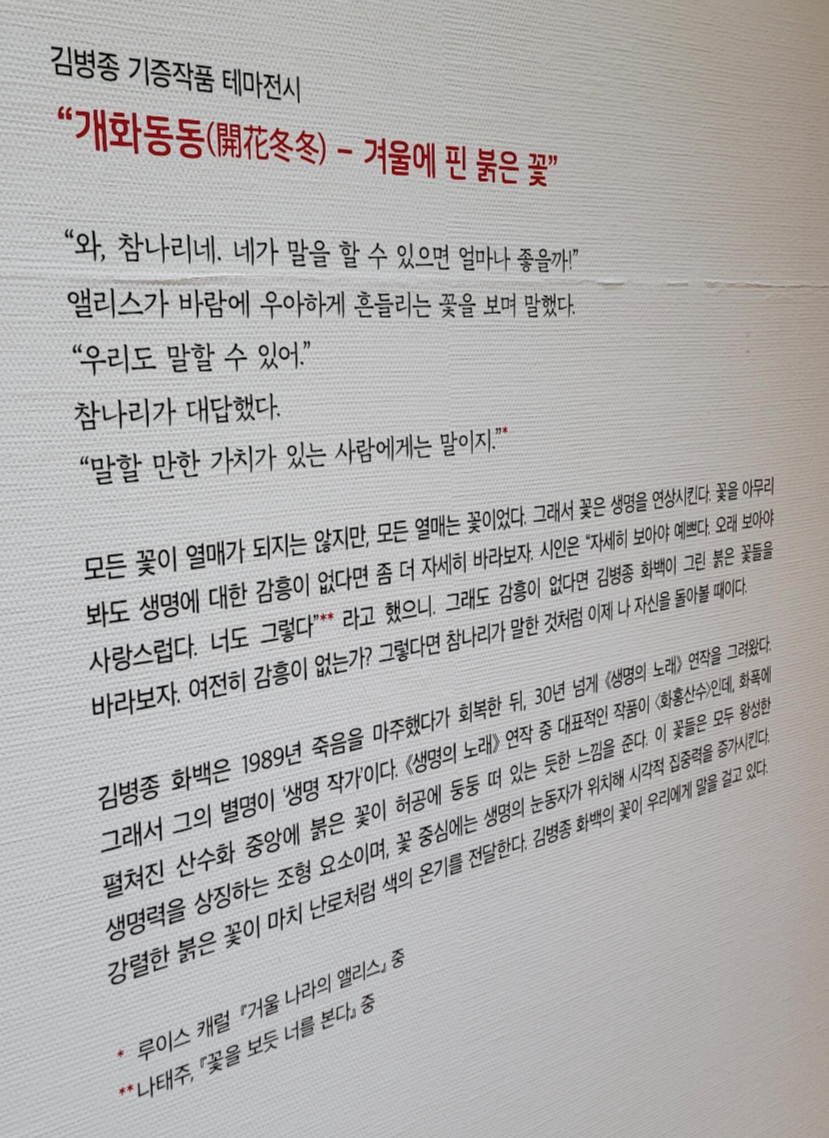 김병종 기증작품 테마전시
“개화동동(開花冬冬) - 겨울에 핀 붉은 꽃”
“와, 참나리네. 네가 말을 할 수 있으면 얼마나 좋을까!”
앨리스가 바람에 우아하게 흔들리는 꽃을 보며 말했다.
“우리도 말할 수 있어.”
참나리가 대답했다.
“말할 만한 가치가 있는 사람에게는 말이지.”*
모든 꽃이 열매가 되지는 않지만, 모든 열매는 꽃이었다. 그래서 꽃은 생명을 연상시킨다. 꽃을 아무리
봐도 생명에 대한 감흥이 없다면 좀 더 자세히 바라보자. 시인은 “자세히 보아야 예쁘다. 오래 보아야
사랑스럽다. 너도 그렇다”** 라고 했으니. 그래도 감흥이 없다면 김병종 화백이 그린 붉은 꽃들을
바라보자. 여전히 감흥이 없는가? 그렇다면 참나리가 말한 것처럼 이제 나 자신을 돌아볼 때이다.
김병종 화백은 1989년 죽음을 마주했다가 회복한 뒤, 30년 넘게 《생명의 노래》 연작을 그려왔다.
그래서 그의 별명이 ‘생명 작가’이다. 《생명의 노래》 연작 중 대표적인 작품이 〈화홍산수〉인데, 화폭에
펼쳐진 산수화 중앙에 붉은 꽃이 허공에 둥둥 떠 있는 듯한 느낌을 준다. 이 꽃들은 모두 왕성한
생명력을 상징하는 조형 요소이며, 꽃 중심에는 생명의 눈동자가 위치해 시각적 집중력을 증가시킨다.
강렬한 붉은 꽃이 마치 난로처럼 색의 온기를 전달한다. 김병종 화백의 꽃이 우리에게 말을 걸고 있다.
* 루이스 캐럴 『거울 나라의 앨리스』 중
** 나태주, 『꽃을 보듯 너를 본다』 중